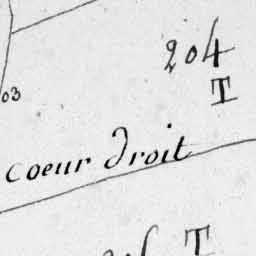 204
T
03
coeur droit
T